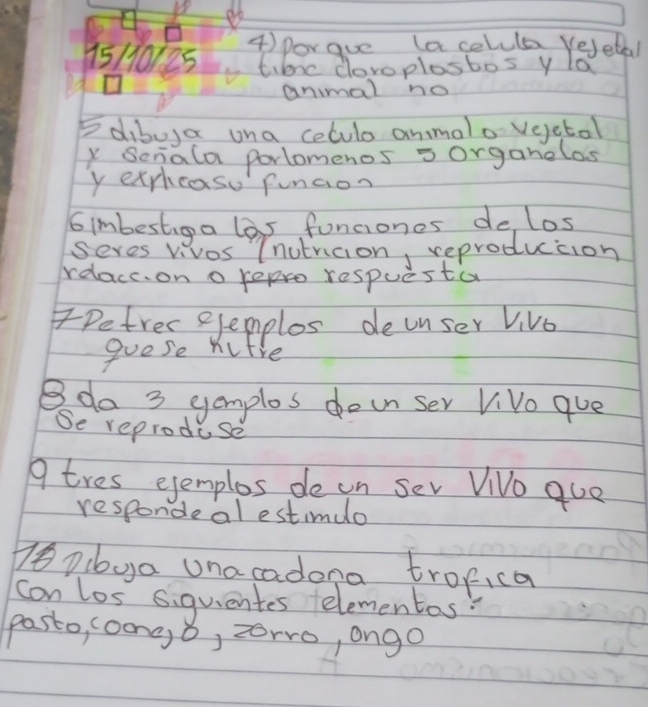 15/10/25
4) porque la celula vejetal
tiene cloroplastos y la
animal no
5 dibuja una celula animal o vejetal
y señala porlomenos 5 organelos
y explicasu funcion
6 imbestiga las funciones de los
seres vivos (nutricion, reproduccion
relaccion o repro respuesta
7 De tres ejemplos de un ser vivo
que se nutre
8 da 3 ejemplos de un ser vivo que
se reproduse
9 tres ejemplos de un ser vivo que
responde al estimulo
10 Dibuja una cadena trofica
con los siguientes elementos:
pasto, conejo, zorro, ongo